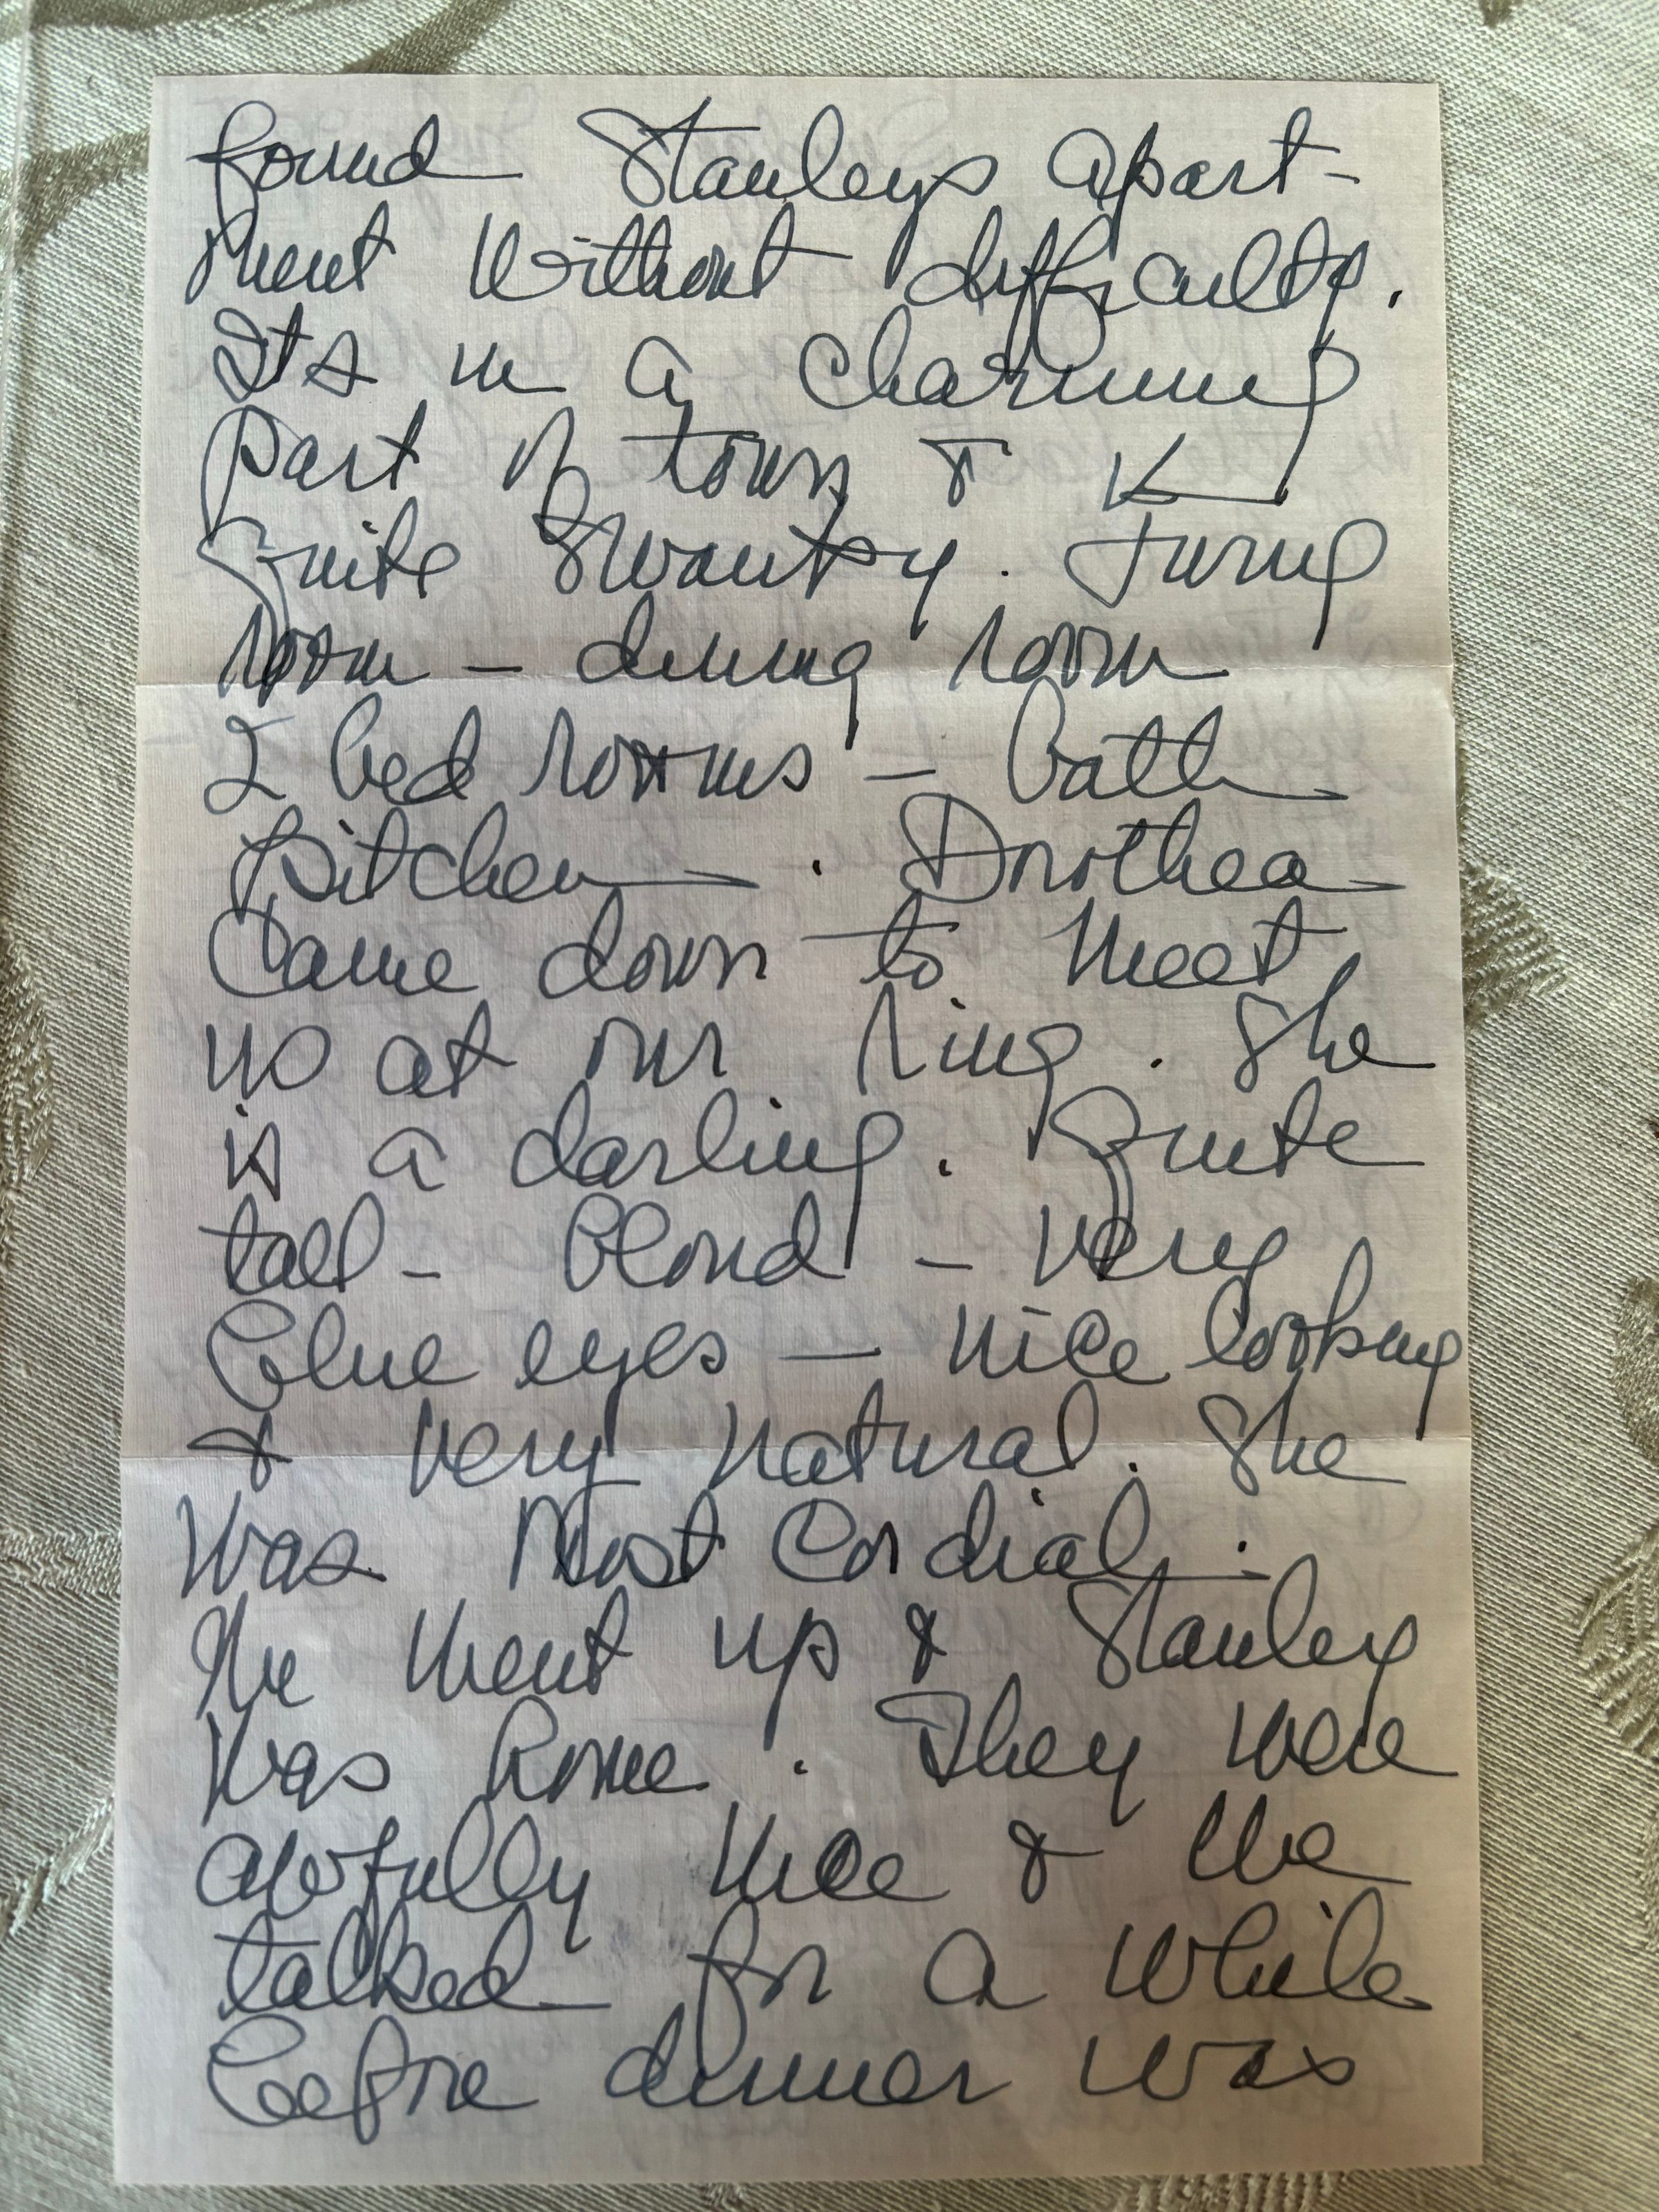 found Stanleys apart-
ment without difficulty.
Its in a charming
part of town &
quite swanky. Living
room - dining room
2 bed rooms - bath
Kitchen. Dorothea
came down to meet
us at our ring. She
is a darling. Quite
tall - blond - very
blue eyes - nice looking
& very natural. She
was most cordial.
We went up & Stanley
was home. They were
awfully nice & we
talked for a while
before dinner was